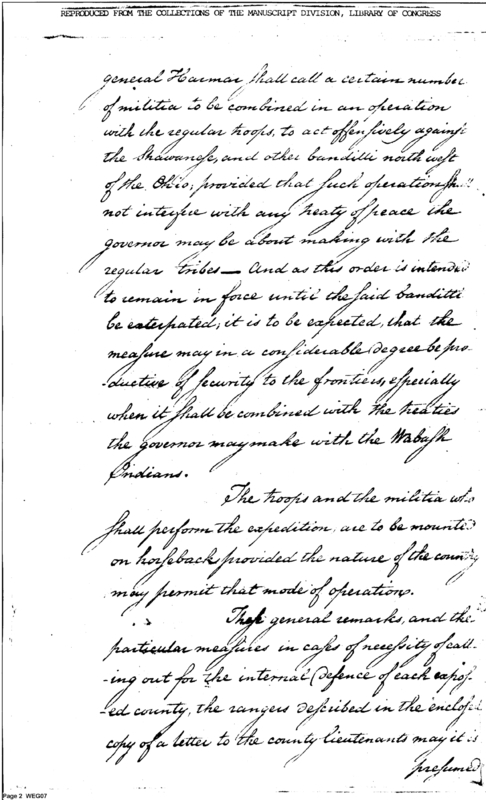 REPRODUCED FROM THE COLLECTIONS OF THE MANUSCRIPT DIVISION, LIBRARY OF CONGRESS
general Harmar shall call a certain number
of militia to be combined in an operation
with the regular troops, to act offensively against
the Shawanese, and other banditti north west
of the Ohio, provided that such operation shall
not interfere with any treaty of peace the
governor may be about making with the
regular tribes— And as this order is intended
to remain in force until the said banditti
be exterpated, it is to be expected, that the
measure may in a considerable degree be pro-
-ductive of security to the frontiers, especially
when it shall be combined with the treaties
the governor may make with the Wabash
Indians.
The troops and the militia who
shall perform the expedition, are to be mounted
on horseback provided the nature of the country
may permit that mode of operations.
These general remarks, and the
particular measures in cases of necessity of call-
-ing out for the internal defence of each expos-
-ed county, the rangers described in the enclosed
copy of a letter to the county lieutenants may it is
presumed
Page 2 WEG07